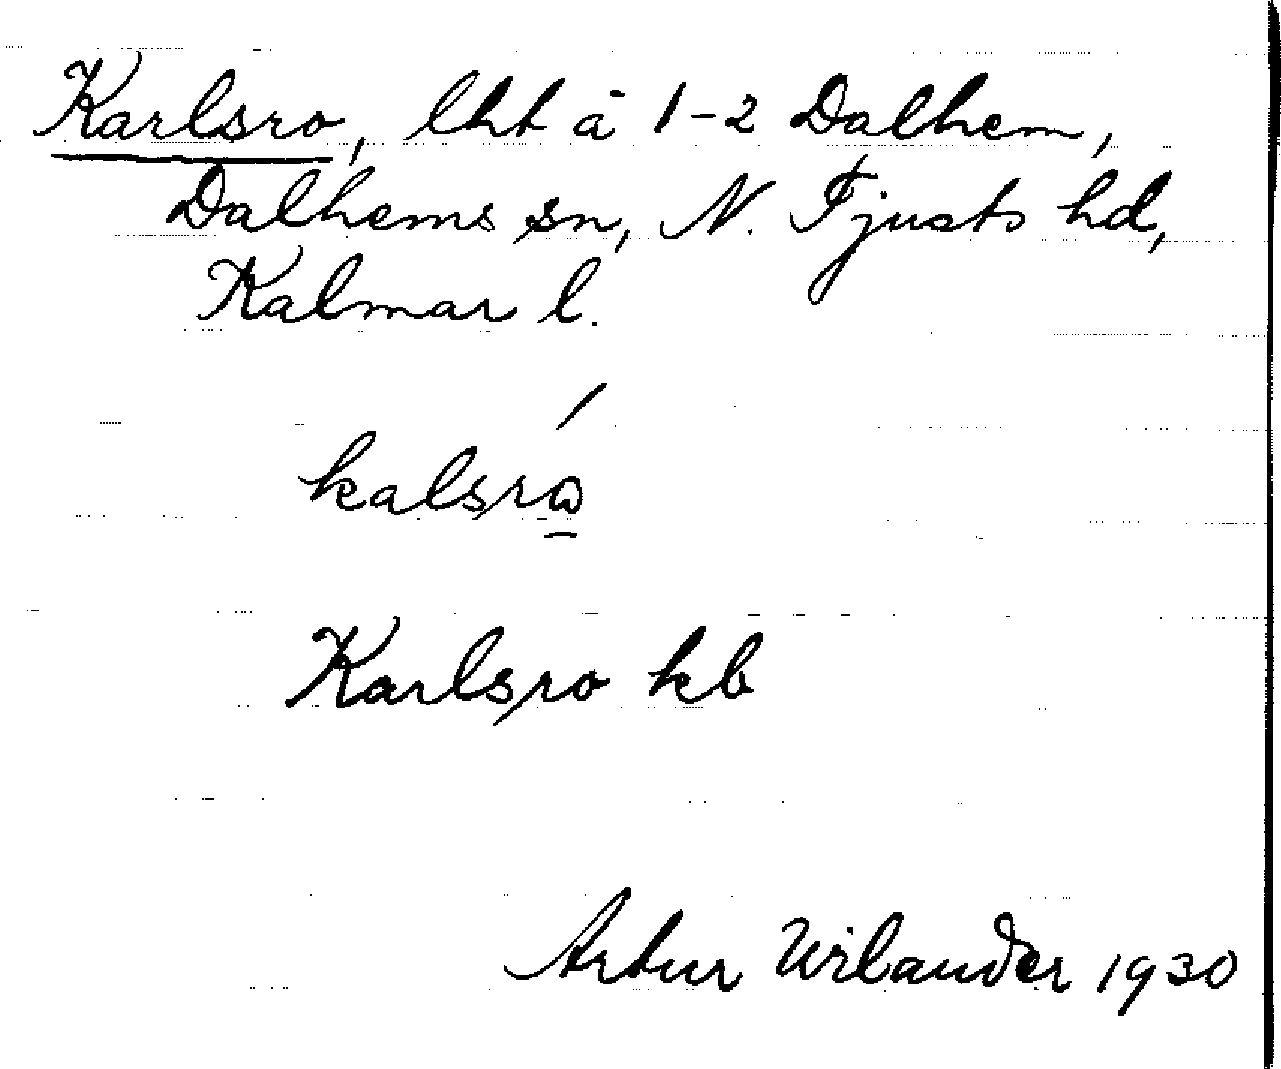 Karlsro, lht å 1-2 Dalhem,
Dalhems sn, N. Tjusts hd,
Kalmar l.
kalsrώ̱
Karlsro kb
Artur Wilander 1930